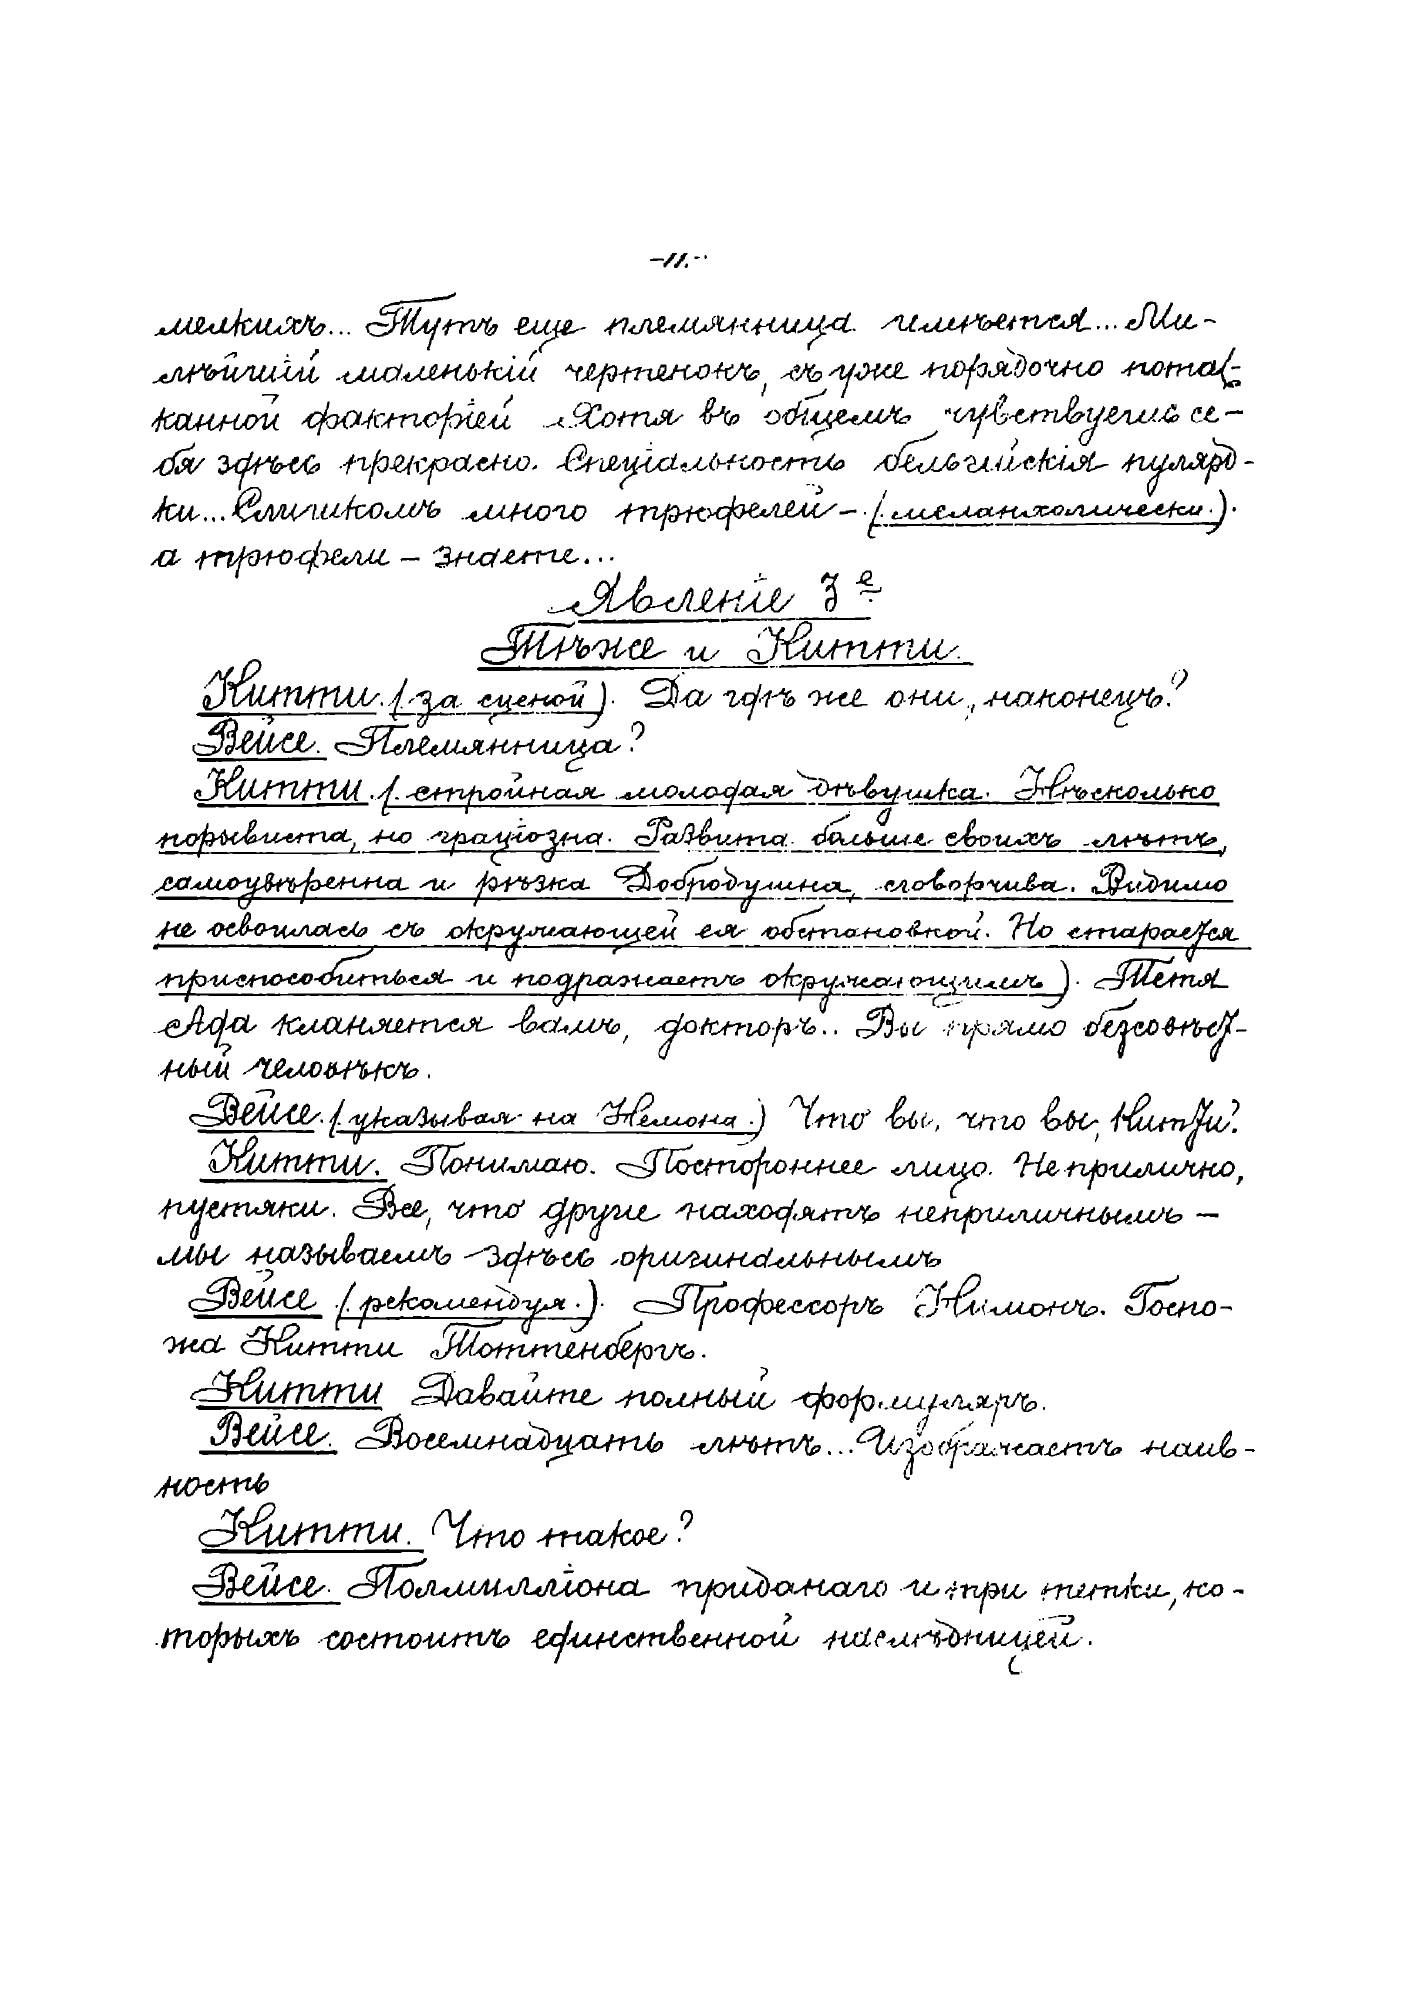 -11.-
мелкихъ... Тутъ еще племянница имѣется... Ми-
лѣйшій маленькій чертенокъ, съ уже порядочно пота-
канной факторіей Хотя въ общемъ чувствуешь се-
бя здѣсь прекрасно. Спеціальность бельгійскія пуляр-
ки... Слишкомъ много трюфелей - (.меланхолически.).
а трюфели - знаете...
Явленіе 3е
Тѣже и Китти.
Китти. (за сценой). Да гдѣ же они, наконецъ?
Вейсе. Племянница?
Китти. (. стройная молодая дѣвушка. Нѣсколько
порывиста, но граціозна. Развита больше своихъ лѣтъ,
самоувѣренна и рѣзка Добродушна, сговорчива. Видимо
не освоилась съ окружающей ея обстановкой. Но старается
приспособиться и подражаетъ окружающимъ). Тетя
Ада кланяется вамъ, докторъ.. Вы прямо безсовѣст-
ный человѣкъ.
Вейсе. (указывая на Немона.) Что вы, что вы, Китти?
Китти. Понимаю. Постороннее лицо. Неприлично,
пустяки. Все, что другіе находятъ неприличнымъ -
мы называемъ здѣсь оригинальнымъ
Вейсе (. рекомендуя.). Профессоръ Нимонъ. Госпо-
жа Китти Тоттенбергъ.
Китти Давайте полный формуляръ.
Вейсе. Восемнадцать лѣтъ... Изображаетъ наив-
ность
Китти. Что такое?
Вейсе. Полмилліона приданаго и три тетки, ко-
торыхъ состоитъ единственной наслѣдницей.